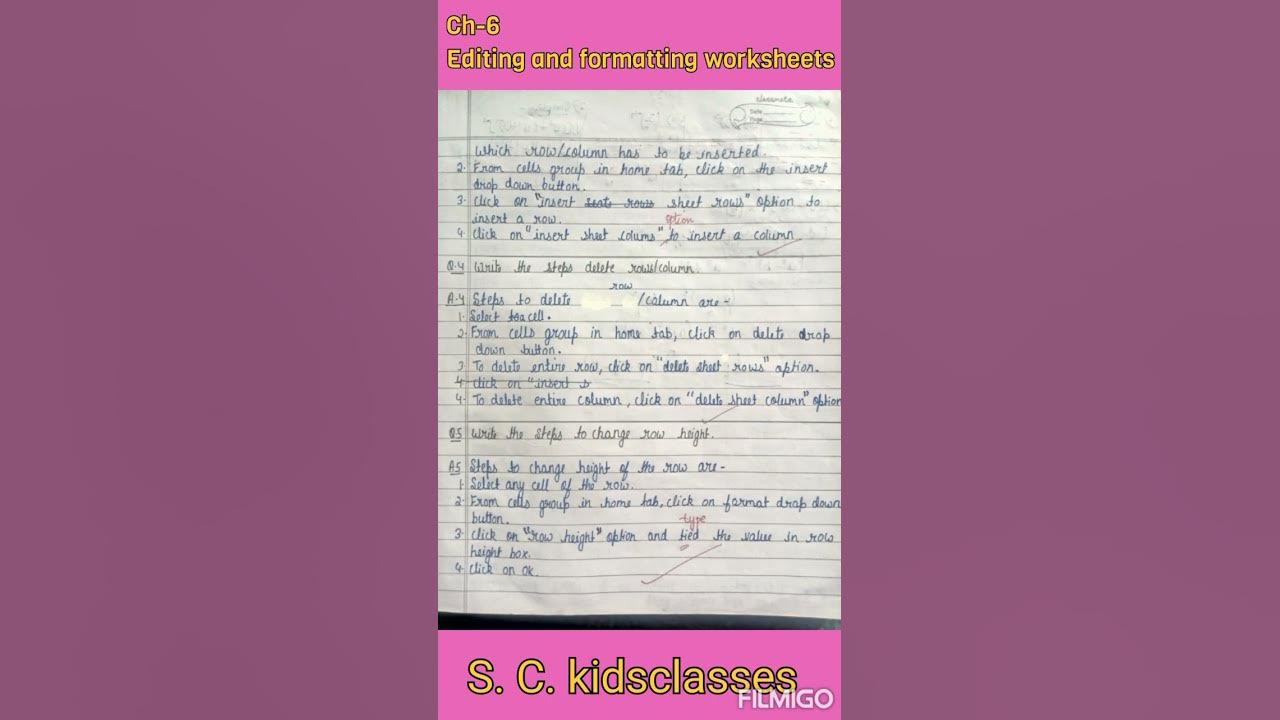 Ch-6
Editing and formatting worksheets
classmate
Date
Page
which row/column has to be inserted.
2. From cells group in home tab, click on the insert
drop down button.
3. click on "insert sheet rows" option to
insert a row.
option
4. click on "insert sheet colums" to insert a column
Q.4 Write the steps delete rows/column.
row
A.4 Steps to delete /column are-
1. Select a cell.
2. From cells group in home tab, click on delete drop
down button.
3. To delete entire row, click on "delete sheet rows" option.
4. click on "insert s
4. To delete entire column, click on "delete sheet column" option
Q5 Write the steps to change row height.
A5 Steps to change height of the row are-
1. Select any cell of the row.
2. From cells group in home tab, click on format drop down
button.
type
3. click on "row height" option and tied the value in row
height box.
4. click on ok.
S. C. kidsclasses
FILMIGO